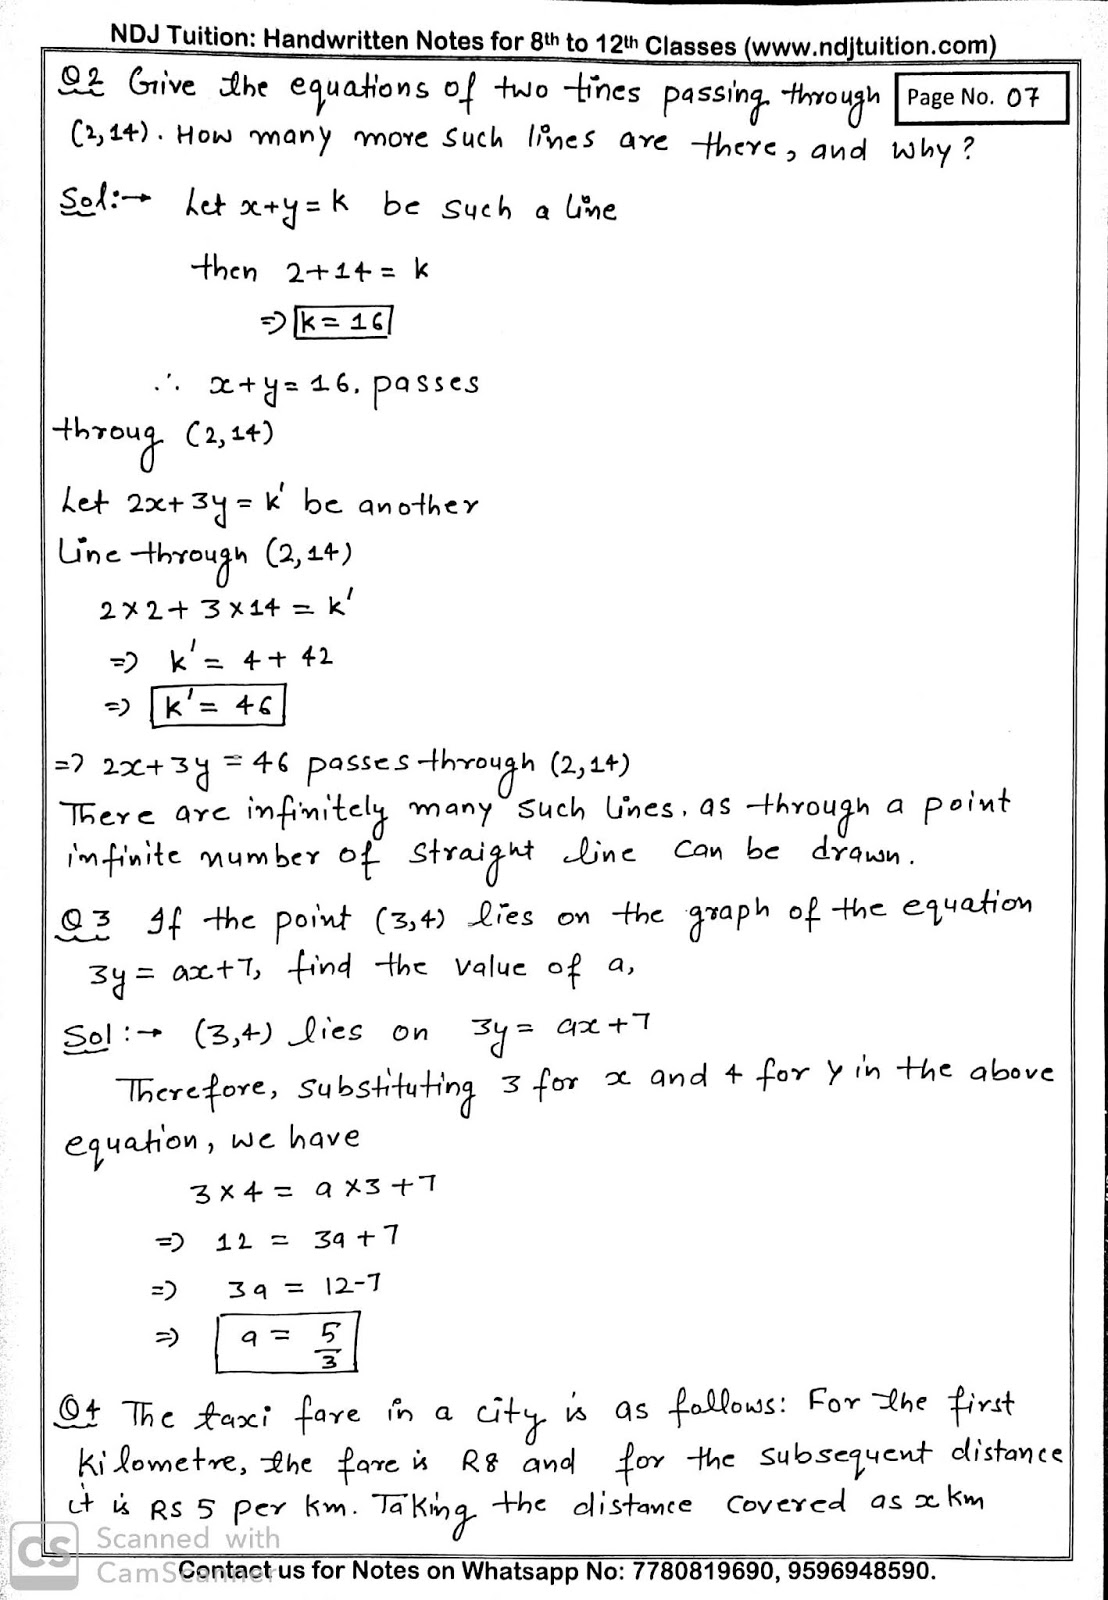 NDJ Tuition: Handwritten Notes for 8th to 12th Classes (www.ndjtuition.com)
Q2 Give the equations of two tines passing through
Page No. 07
(2,14). How many more such lines are there, and why?
Sol:→ Let x+y=k be such a line
then 2+14 = k
⇒ k = 16
∴ x+y=16. passes
throug (2,14)
Let 2x+3y = k' be another
Line through (2,14)
2×2+3×14 = k'
⇒ k' = 4+42
⇒ k' = 46
⇒ 2x+3y = 46 passes through (2,14)
There are infinitely many such lines, as through a point
infinite number of straight line can be drawn.
Q3 If the point (3,4) lies on the graph of the equation
3y = ax+7, find the value of a,
Sol:→ (3,4) lies on 3y = ax+7
Therefore, substituting 3 for x and 4 for y in the above
equation, we have
3×4 = a×3+7
⇒ 12 = 3a+7
⇒ 3a = 12-7
⇒ a = 5/3
Q4 The taxi fare in a city is as follows: For the first
kilometre, the fare is R8 and for the subsequent distance
it is RS 5 per km. Taking the distance covered as x km
CS Scanned with
CamScanner
Contact us for Notes on Whatsapp No: 7780819690, 9596948590.